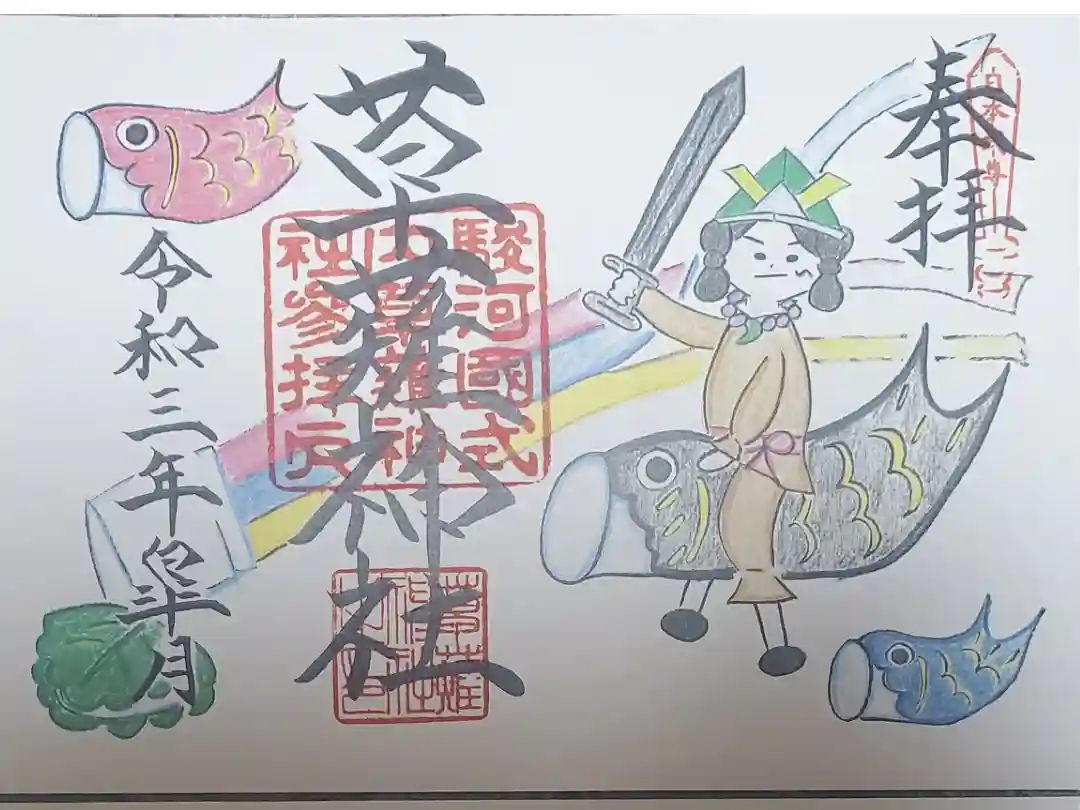 奉拝
草薙神社
駿河國式
内草薙神
社參拝
草薙
神社
令和三年皐月